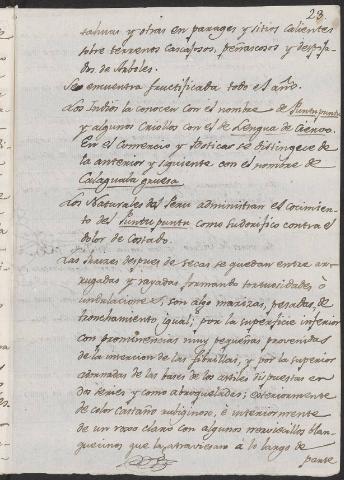 23.
sahuas y otras en parages y sitios calientes
sobre terrenos cascajosos, peñascosos y despeja-
dos de Arboles.
Se encuentra fructificada todo el año.
Los Indios la conocen con el nombre de Puntupuntu
y algunos Criollos con el de Lengua de Ciervo.
En el Comercio y Boticas se distingece de
la anterior y siguiente con el nombre de
Calaguala gruesa
Los Naturales del Peru administran el Cocimien-
to del Puntu puntu como Sudorifico contra el
dolor de Costado.
Las Raizes despues de secas se quedan entre arr-
rugadas y rayadas formando tortuosidades ò
undulaciones, son algo macizas, pesadas, de
tronchamiento igual; por la superficie inferior
con prominencias muy pequeñas provenidas
de la insercion de las fibrillas, y por la superior
adornadas de las bases de los astiles dispuestas en
dos series y como abroqueladas; exteriormente
de color castaño rubiginoso, è interiormente
de un roxo claro con algunos nerviecillos blan-
quecinos que la atraviesan à lo largo de
parte